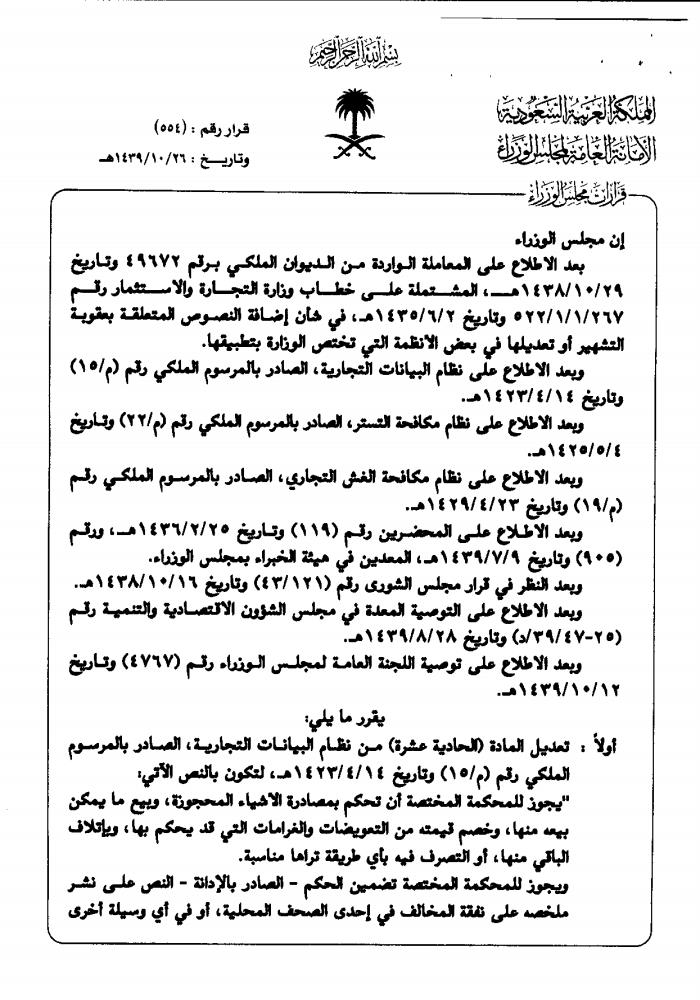 بسم الله الرحمن الرحيم
المملكة العربية السعودية
الأمانة العامة لمجلس الوزراء
قرار رقم : (٥٥٤)
وتاريخ : ١٤٣٩/١٠/٢٦هـ
قرارات مجلس الوزراء
إن مجلس الوزراء
بعد الاطلاع على المعاملة الواردة من الديوان الملكي برقم ٤٩٦٧٢ وتاريخ
١٤٣٨/١٠/٢٩هـ، المشتملة على خطاب وزارة التجارة والاستثمار رقم
٥٢٢/١/١/٢٦٧ وتاريخ ١٤٣٥/٦/٢هـ، في شأن إضافة النصوص المتعلقة بعقوبة
التشهير أو تعديلها في بعض الأنظمة التي تختص الوزارة بتطبيقها.
وبعد الاطلاع على نظام البيانات التجارية، الصادر بالمرسوم الملكي رقم (م/١٥)
وتاريخ ١٤٢٣/٤/١٤هـ.
وبعد الاطلاع على نظام مكافحة التستر، الصادر بالمرسوم الملكي رقم (م/٢٢) وتاريخ
١٤٢٥/٥/٤هـ.
وبعد الاطلاع على نظام مكافحة الغش التجاري، الصادر بالمرسوم الملكي رقم
(م/١٩) وتاريخ ١٤٢٩/٤/٢٣هـ.
وبعد الاطلاع على المحضرين رقم (١١٩) وتاريخ ١٤٣٦/٢/٢٥هـ، ورقم
(٩٠٥) وتاريخ ١٤٣٩/٧/٩هـ، المعدين في هيئة الخبراء بمجلس الوزراء.
وبعد النظر في قرار مجلس الشورى رقم (٤٣/١٢١) وتاريخ ١٤٣٨/١٠/١٦هـ.
وبعد الاطلاع على التوصية المعدة في مجلس الشؤون الاقتصادية والتنمية رقم
(٢٥-٣٩/٤٧/د) وتاريخ ١٤٣٩/٨/٢٨هـ.
وبعد الاطلاع على توصية اللجنة العامة لمجلس الوزراء رقم (٤٧٦٧) وتاريخ
١٤٣٩/١٠/١٢هـ.
يقرر ما يلي:
أولاً : تعديل المادة (الحادية عشرة) من نظام البيانات التجارية، الصادر بالمرسوم
الملكي رقم (م/١٥) وتاريخ ١٤٢٣/٤/١٤هـ، لتكون بالنص الآتي:
"يجوز للمحكمة المختصة أن تحكم بمصادرة الأشياء المحجوزة، وبيع ما يمكن
بيعه منها، وخصم قيمته من التعويضات والغرامات التي قد يحكم بها، وبإتلاف
الباقي منها، أو التصرف فيه بأي طريقة تراها مناسبة.
ويجوز للمحكمة المختصة تضمين الحكم - الصادر بالإدانة - النص على نشر
ملخصه على نفقة المخالف في إحدى الصحف المحلية، أو في أي وسيلة أخرى